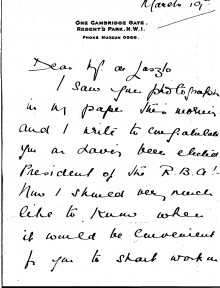 March 19
One Cambridge Gate,
Regent's Park, N.W.1.
Phone Museum 0886.
Dear Mr de Laszlo
I saw your photograph
in my paper this morning
and I write to congratulate
you on having been elected
President of the R.B.A!
Now I should very much
like to know when
it would be convenient
for you to start work on